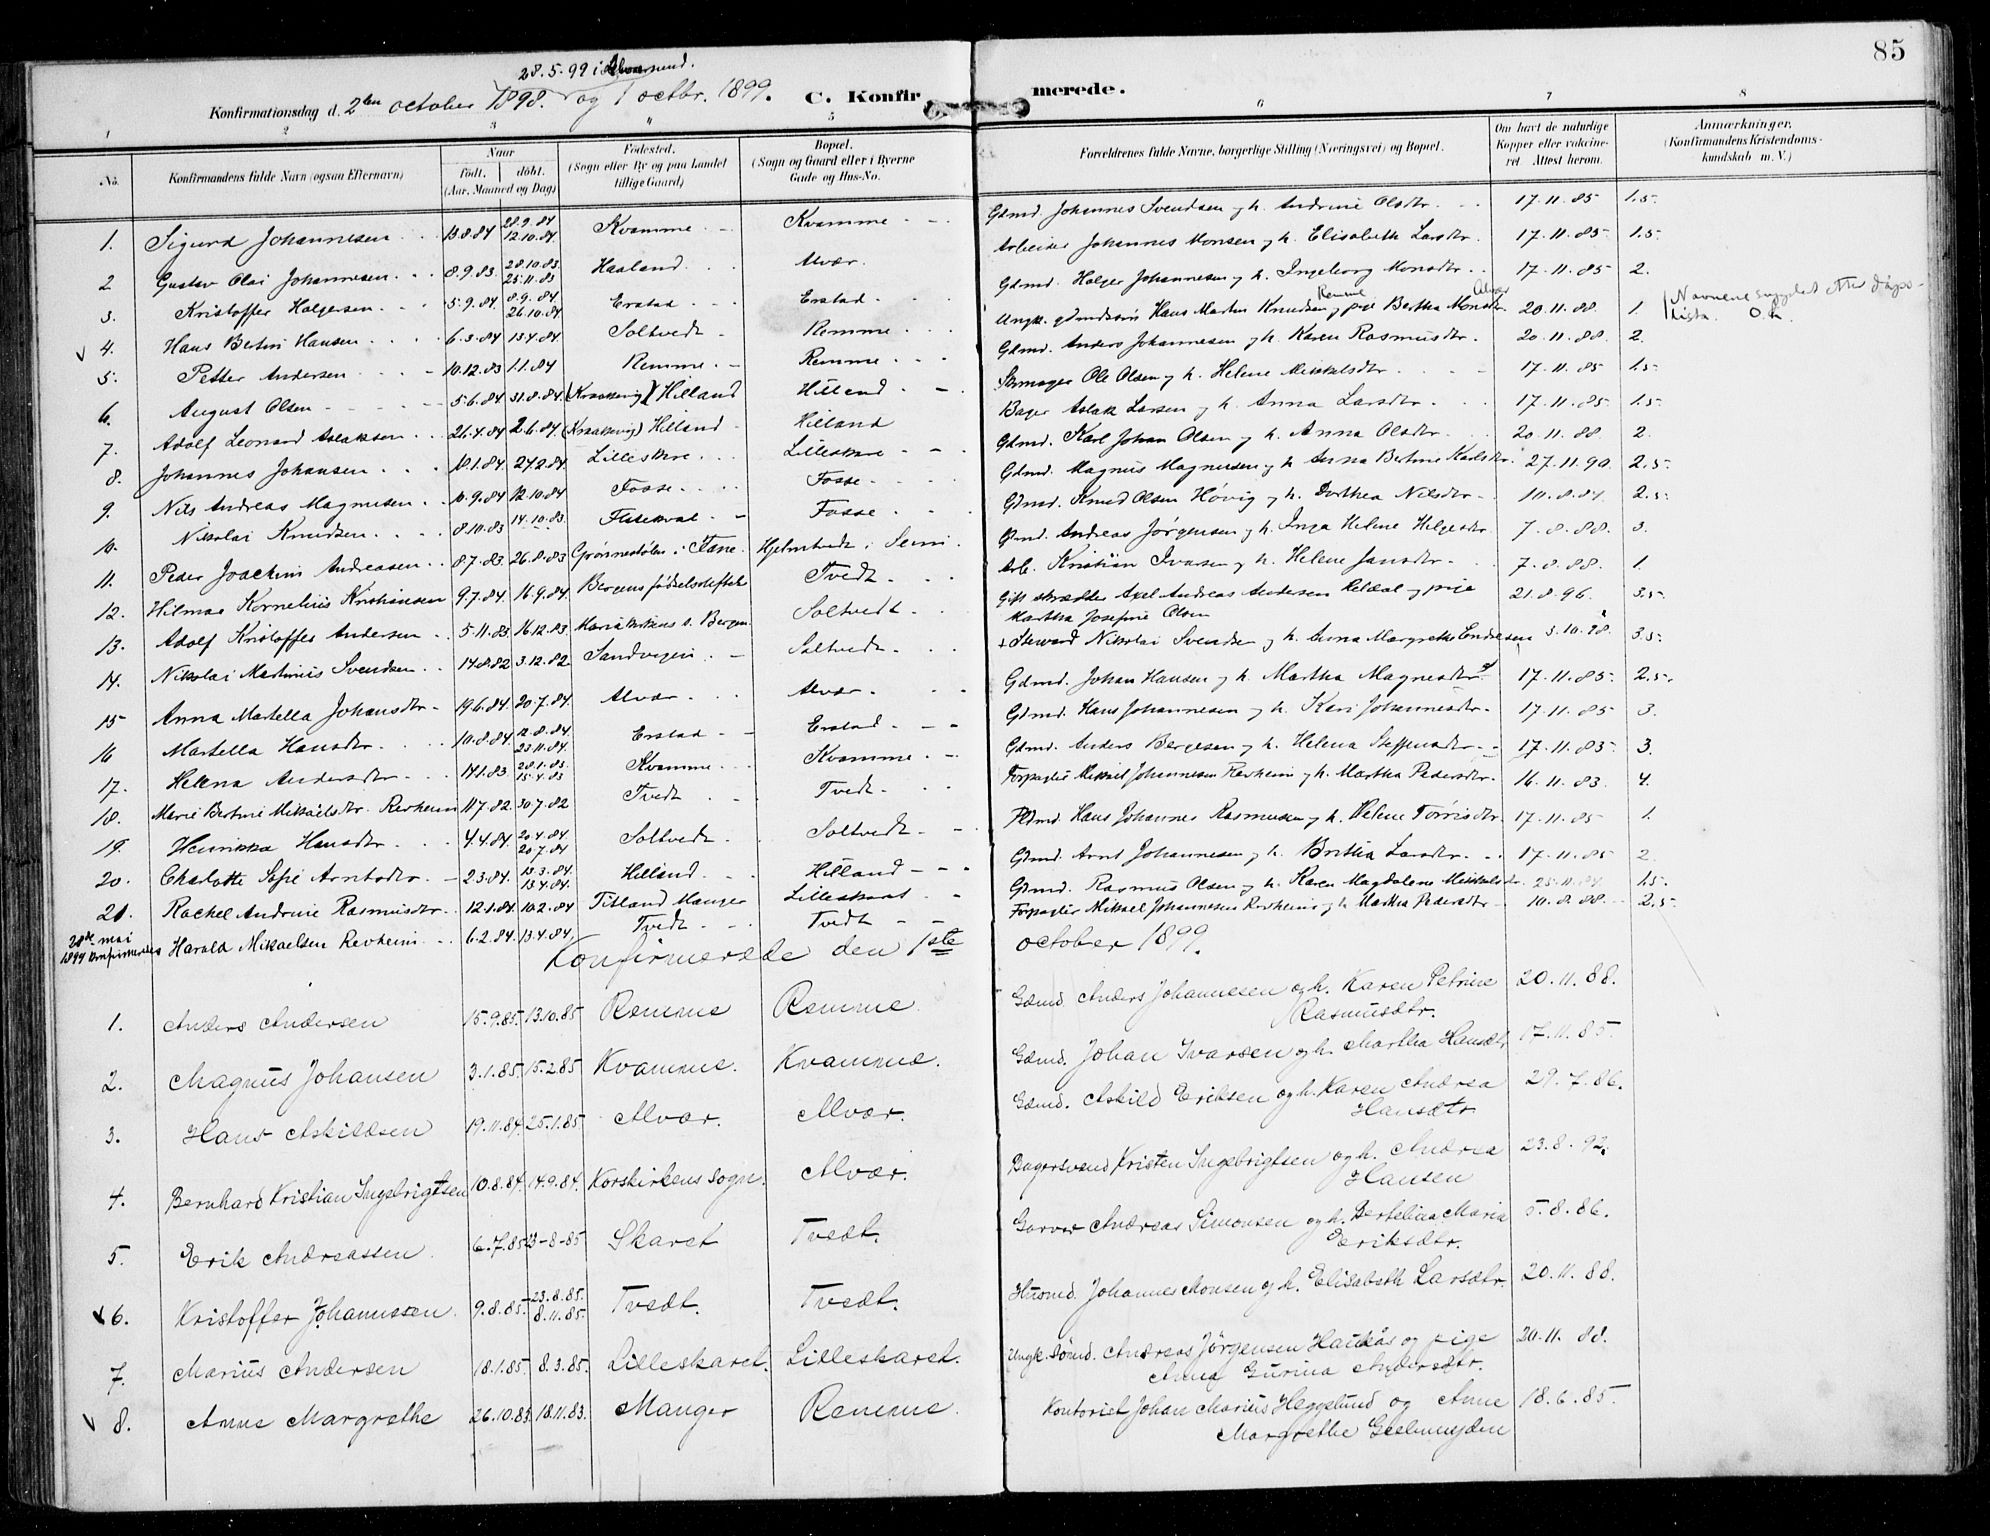 85
28.5.99 i
Konfirmationsdag d. 2den october 1898. og 1 octbr. 1899. C. Konfirmerede.
1 2 3 4 5 6 7 8
No. Konfirmandens fulde Navn (ogsaa Efternavn) Naar født. døbt. (Aar, Maaned og Dag) Fødested. (Sogn eller By og paa Landet tillige Gaard) Bopæl. (Sogn og Gaard eller i Byerne Gade og Hus-No. Forældrenes fulde Navne, borgerlige Stilling (Næringsvei) og Bopæl. Om havt de naturlige Kopper eller vakcineret. Attest herom. Anmærkninger. (Konfirmandens Kristendomskundskab m. V.)
1. Sigurd Johannesen 13.8.84 28.9.84 12.10.84 Kvamme Kvamme Gdmd. Johannes Svendsen og h. Andrine Olsdtr. 17.11.85 1.5
2 Gustav Olai Johannesen 8.9.83. 28.10.83 25.11.83 Haaland Alvær. Arbeider Johannes Monsen og h. Elisabeth Larsdtr. 17.11.85 1.5
3. Kristoffer Holgersen 5.9.84 8.9.84 26.10.84 Erstad Erstad Gdmd. Holger Johannesen og h. Ingeborg Monsdtr. 17.11.85 2.
4. Hans Bertin Hansen 6.3.84 13.4.84. Soltvedt Remme Ungk. gdmdssøn Hans Martin Knudsen Remme og pige Bertha Monsdtr. Alvær 20.11.88 1. Navnene
5. Petter Andersen 10.12.83 1.1.84 Remme Remme Gdmd. Anders Johannesen og h. Karen Rasmusdtr. 20.11.88. 2.
6. August Olsen 5.6.84 31.8.84. (Kraakevig) Hilland Hilland Skomager Ole Olsen og h. Helene Mikkelsdtr. 17.11.85 1.5
7. Adolf Leonard Aslaksen 26.4.84 2.6.84. (Kraakevig) Hilland Hilland Bager Aslak Larsen og h. Anna Larsdtr. 17.11.85 1.5
8. Johannes Johansen 18.1.84 24.2.84. Lilleskare Lilleskare Gdmd. Karl Johan Olsen og h. Anna Olsdtr. 20.11.88 2.
9. Nils Andreas Magnusen 10.9.84 12.10.84 Fosse Fosse Gdmd. Magnus Magnusen og h. Anna Bertine Karlsdtr. 27.11.90. 2.5
10. Nikolai Knudsen 8.10.83 14.10.83. Fosse Gdmd. Knud Olsen Høvig og h. Dorthea Nilsdtr. 10.8.84. 2.5
11. Peder Joachim Andreasen 8.7.83 26.8.83 Grønnestølen i Fane. Hjelmtvedt i Seim. Gmd. Andreas Jørgensen og h. Inga Helene Helgesdtr. 7.8.88. 3.
12. Hilmar Kornelius Kristiansen 9.7.84. 16.9.84. Bergens fødselsstiftelse Tvedt Arb. Kristian Ivarsen og h. Helene Jansdtr. 7.8.88. 1.
13. Adolf Kristoffer Andersen 5.11.83 16.12.83 Mariakirkens s. Bergen Soltvedt Gift skrædder Axel Andreas Andersen Reldal og pige 21.8.96. 3.5
Martha Josefine Olsen
14. Nikolai Martinus Svendsen 14.8.82 3.12.82. Sandvigen Soltvedt. + Steward Nikolai Svendsen og h. Anna Margrethe Endresen 3.10.98. 3.5
15 Anna Martella Johansdtr. 19.6.84 20.7.84. Alvær Alvær. Gdmd. Johan Hansen og h. Martha Magnesdtr. 17.11.85. 2.5
16 Martella Hansdtr. 10.8.84 12.8.84 23.11.84. Erstad Erstad Gdmd. Hans Johannesen og h. Kari Johannesdtr. 17.11.85 3.
17. Helena Andersdtr. 14.1.83. 28.1.83. 15.4.83 Kvamme Kvamme Gdmd. Anders Bergesen og h. Helena Steffensdtr. 17.11.85 3.
18. Marie Bertine Mikaelsdtr. Revheim 11.7.82 30.7.82 Tvedt Tvedt. Forpagter Mikael Johannesen Revheim og h. Martha Pedersdtr. 16.11.83. 4.
19. Henrikka Hansdtr. 4.4.84. 20.4.84. 20.7.84 Soltvedt Soltvedt Pldmd. Hans Johannes Rasmusen og h. Helene Torrisdtr. 17.11.85 1.
20. Charlotte Sofie Arntsdtr. 2.3.84. 13.3.84. 13.4.84. Hilland. Hilland Gdmd. Arnt Johannesen og h. Britha Larsdtr. 17.11.85 2
21. Rachel Andrine Rasmusdtr. 12.1.84 10.2.84 Titland Manger Lilleskaret Gdmd. Rasmus Olsen og h. Karen Magdalene Mikkelsdtr. 25.11.84 1.5
28de mai 1899 konfirmeredes Harald Mikaelsen Revheim 6.2.84. 13.4.84. Tvedt Tvedt Forpagter Mikael Johannesen Revheim og h. Martha Pedersdtr. 10.8.88. 2.5
Konfirmerede den 1ste october 1899.
1. Anders Andersen 15.9.85. 13.10.85 Remme Remme Gdmd. Anders Johannesen og h. Karen Petrine Rasmusdtr. 20.11.88.
2. Magnus Johansen 3.1.85. 15.2.85 Kvamme. Kvamme. Gdmd. Johan Ivarsen og h. Martha Hansdtr. 17.11.85.
3. Hans Askildsen 19.11.84. 25.1.85 Alvær. Alvær. Gdmd. Askild Eriksen og h. Karen Andrea Hansdtr. 29.7.86.
4. Bernhard Kristian Ingebrigtsen 10.8.84. 14.9.84. Korskirkens sogn. Alvær. Bagersvend Kristen Ingebrigtsen og h. Andrea Hansen 23.8.92.
5. Erik Andreassen 6.7.85 23-8-85 Skaret Tvedt. Garver Andreas Simonsen og h. Bertelina Maria Eriksdtr. 5.8.86.
6. Kristoffer Johannesen 9.8.85. 23.8.85. 8.11.85. Tvedt. Tvedt. Husmd. Johannes Monsen og h. Elisabeth Larsdtr. 20.11.88.
7. Marius Andersen 18.1.85. 8.3.85. Lilleskaret. Lilleskaret. Ungk. sømd. Andreas Jørgensen Haukås og pige Anna Gurina Andersdtr. 20.11.88.
8. Anne Margrethe 26.10.83 18.11.83. Manger Remme. Kontorist Johan Marius Heggelund og Anne Margrethe Geelmuyden 18.6.85.